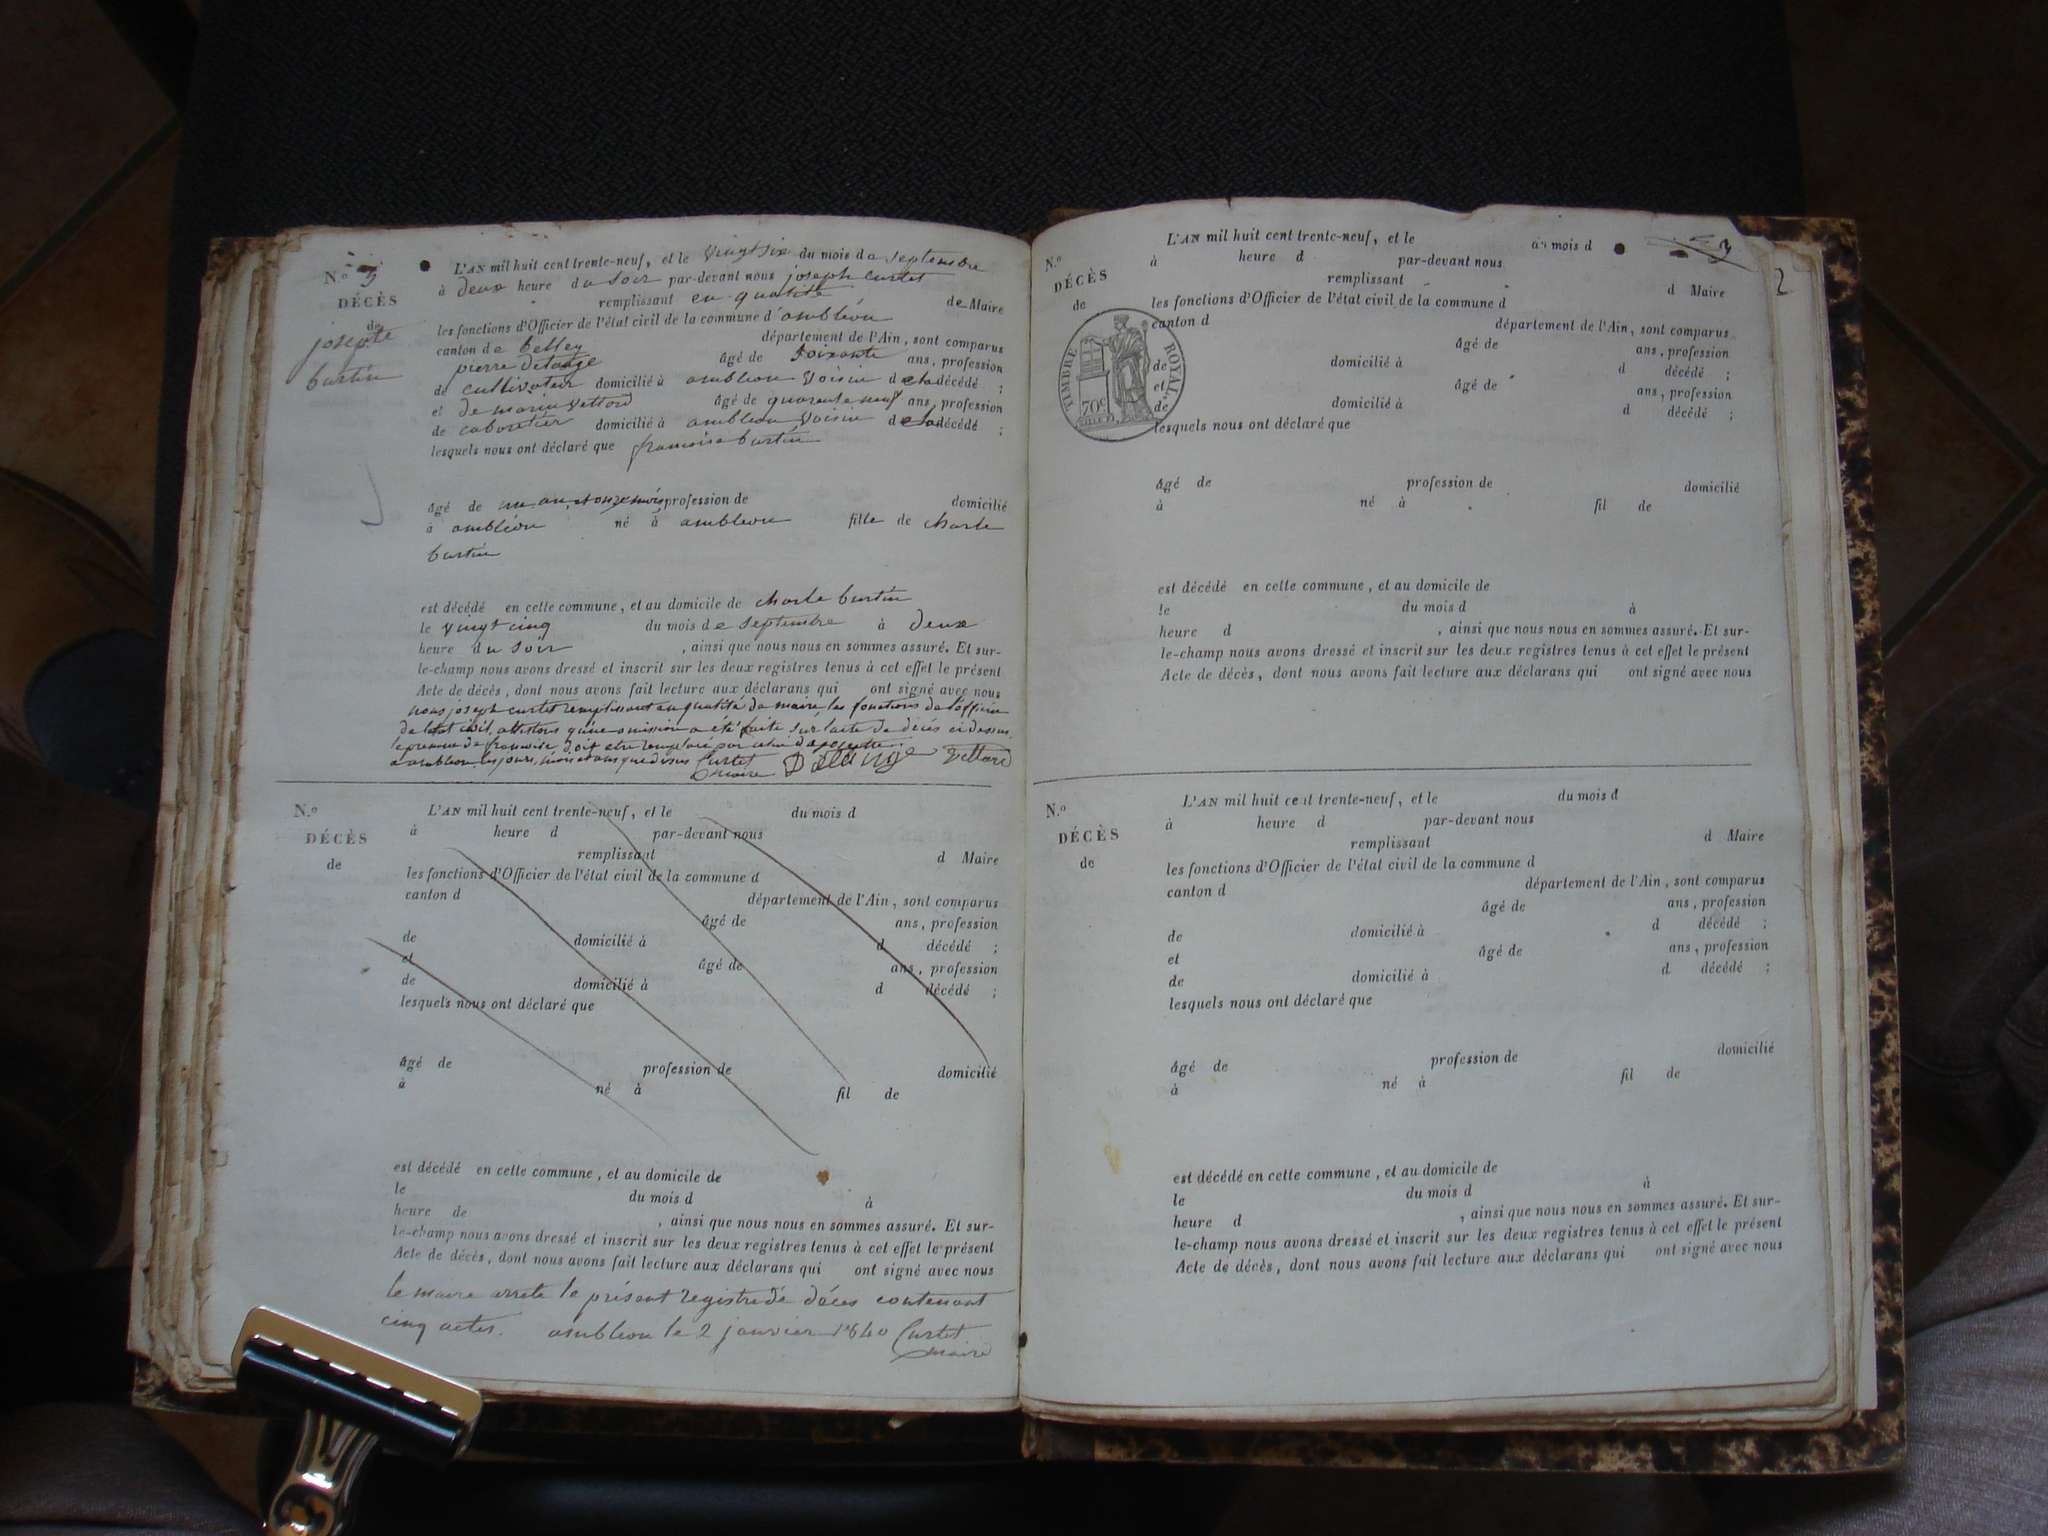 N.º 5
DÉCÈS
de
josepte
burtin
L'AN mil huit cent trente-neuf, et le vingt six du mois de septembre
à deux heure du soir par-devant nous joseph curtet
remplissant en qualité de Maire
les fonctions d'Officier de l'état civil de la commune d'ambléon
canton de belley département de l'Ain, sont comparus
pierre detange âgé de soixante ans, profession
de cultivateur domicilié à ambleon voisin de la décédé ;
et de vettard âgé de quarante neuf ans, profession
de domicilié à ambleon voisin de la décédé ;
lesquels nous ont déclaré que francoise burtin
âgé de un an et onze mois profession de domicilié
à ambléon né à ambleon fille de charle
burtin
est décédé en cette commune, et au domicile de charle burtin
le vingt cinq du mois de septembre à deux
heure du soir , ainsi que nous nous en sommes assuré. Et sur-
le-champ nous avons dressé et inscrit sur les deux registres tenus à cet effet le présent
Acte de décès, dont nous avons fait lecture aux déclarans qui ont signé avec nous
nous joseph curtet remplissant en qualité de maire, les fonctions de l'officier
de letat civil, attestons qu'une omission a été faite sur l'acte de décés ci dessus.
le prenom de francoise doit etre remplacé par celui de josepte.
a ambleon les jours, mois et ans que dessus Curtet
maire Detange Vettard
N.º
DÉCÈS
de
L'AN mil huit cent trente-neuf, et le du mois d
à heure d par-devant nous
remplissant d Maire
les fonctions d'Officier de l'état civil de la commune d
canton d département de l'Ain, sont comparus
âgé de ans, profession
de domicilié à d décédé ;
et âgé de ans, profession
de domicilié à d décédé ;
lesquels nous ont déclaré que
âgé de profession de domicilié
à né à fil de
est décédé en cette commune, et au domicile de
le du mois d à
heure de , ainsi que nous nous en sommes assuré. Et sur-
le-champ nous avons dressé et inscrit sur les deux registres tenus à cet effet le présent
Acte de décès, dont nous avons fait lecture aux déclarans qui ont signé avec nous
le maire arrete le présent registre de déces contenant
cinq actes. ambleon le 2 janvier 1840 Curtet
maire
3
2
N.º
DÉCÈS
de
TIMBRE ROYAL
70c
L'AN mil huit cent trente-neuf, et le du mois d
à heure d par-devant nous
remplissant d Maire
les fonctions d'Officier de l'état civil de la commune d
canton d département de l'Ain, sont comparus
âgé de ans, profession
de domicilié à d décédé ;
et âgé de ans, profession
de domicilié à d décédé ;
lesquels nous ont déclaré que
âgé de profession de domicilié
à né à fil de
est décédé en cette commune, et au domicile de
le du mois d à
heure d , ainsi que nous nous en sommes assuré. Et sur-
le-champ nous avons dressé et inscrit sur les deux registres tenus à cet effet le présent
Acte de décès, dont nous avons fait lecture aux déclarans qui ont signé avec nous
N.º
DÉCÈS
de
L'AN mil huit cent trente-neuf, et le du mois d
à heure d par-devant nous
remplissant d Maire
les fonctions d'Officier de l'état civil de la commune d
canton d département de l'Ain, sont comparus
âgé de ans, profession
de domicilié à d décédé ;
et âgé de ans, profession
de domicilié à d décédé ;
lesquels nous ont déclaré que
âgé de profession de domicilié
à né à fil de
est décédé en cette commune, et au domicile de
le du mois d à
heure d , ainsi que nous nous en sommes assuré. Et sur-
le-champ nous avons dressé et inscrit sur les deux registres tenus à cet effet le présent
Acte de décès, dont nous avons fait lecture aux déclarans qui ont signé avec nous